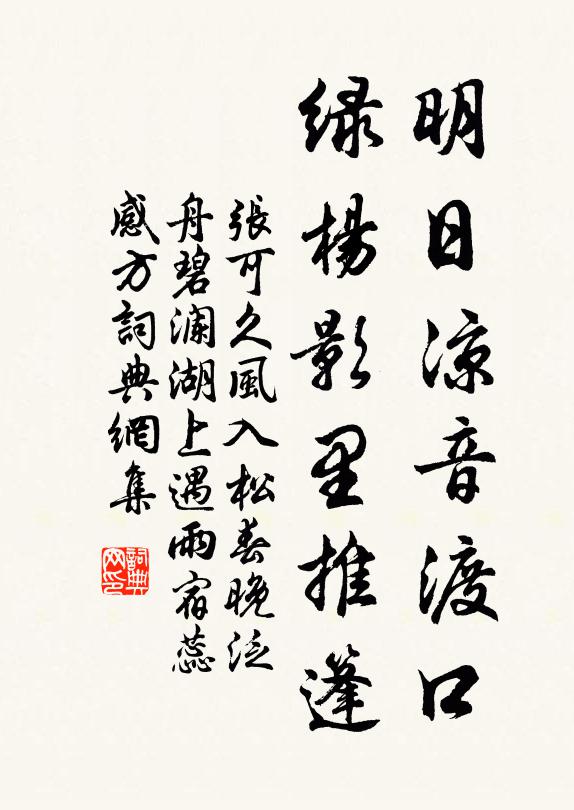 明日凉音渡口
绿楊影里推篷
張可久風入松春晚泛
舟碧澜湖上遇雨宿蕊
感方詞典網集
詞典網印